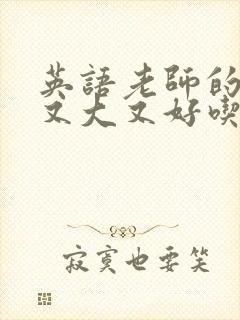 英語老師的
又大又好喫
寂寞也要笑